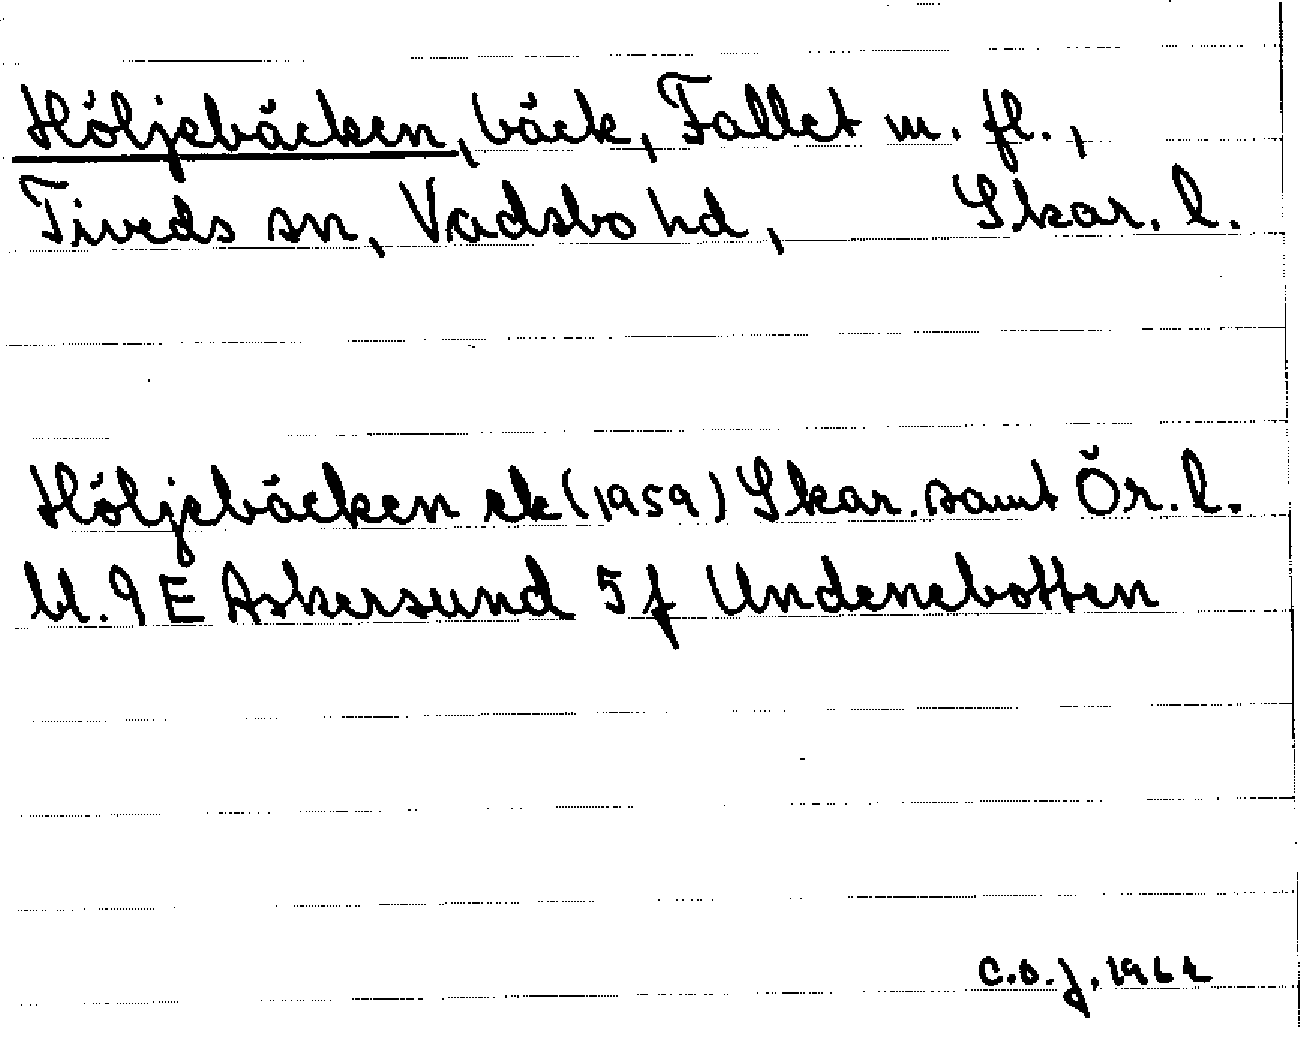 Höljebäcken, bäck, Fallet m. fl.,
Tiveds sn, Vadsbo hd, Skar. l.
Höljebäcken ek (1959) Skar. samt Ör. l.
Bl. 9 E Askersund 5 f Undenebotten
C.O.J. 1962